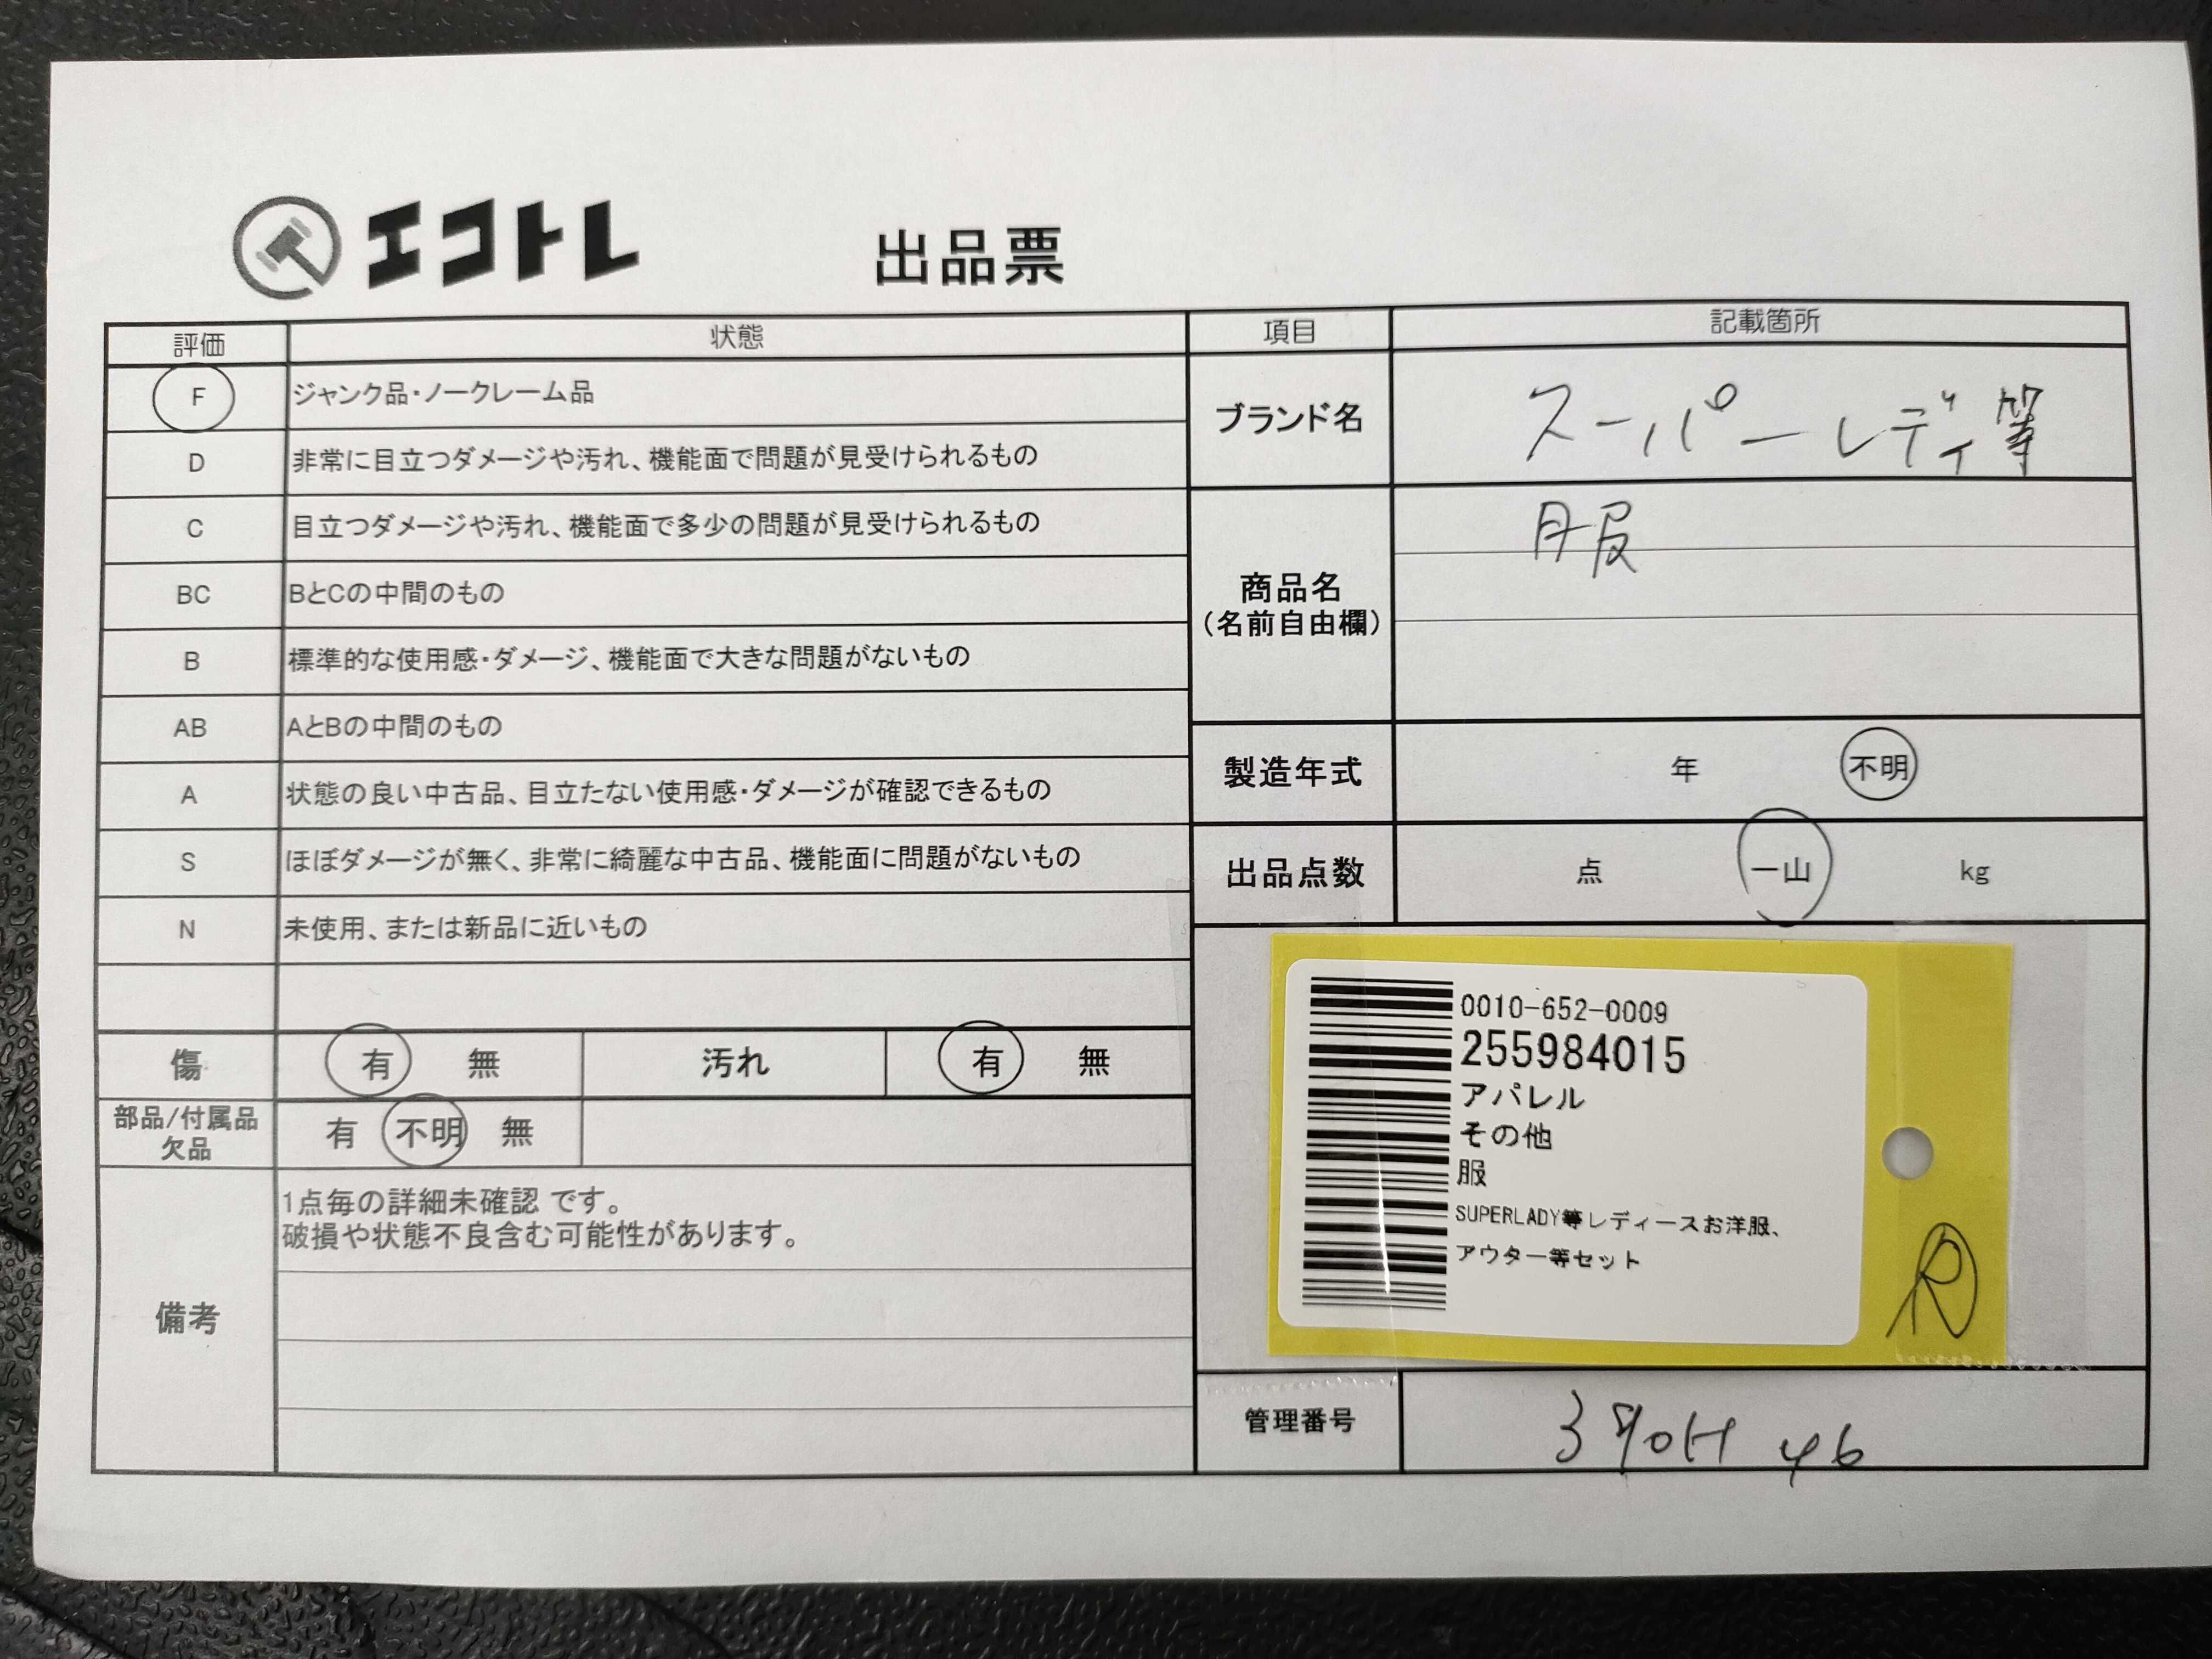 エコトレ
出品票
評価 状態
F ジャンク品・ノークレーム品
D 非常に目立つダメージや汚れ、機能面で問題が見受けられるもの
C 目立つダメージや汚れ、機能面で多少の問題が見受けられるもの
BC BとCの中間のもの
B 標準的な使用感・ダメージ、機能面で大きな問題がないもの
AB AとBの中間のもの
A 状態の良い中古品、目立たない使用感・ダメージが確認できるもの
S ほぼダメージが無く、非常に綺麗な中古品、機能面に問題がないもの
N 未使用、または新品に近いもの
傷 有 無 汚れ 有 無
部品/付属品
欠品 有 不明 無
備考
1点毎の詳細未確認 です。
破損や状態不良含む可能性があります。
項目 記載箇所
ブランド名 スーパーレディ等
商品名
(名前自由欄)
服
製造年式 年 不明
出品点数 点 一山 kg
0010-652-0009
255984015
アパレル
その他
服
SUPERLADY等レディースお洋服、
アウター等セット
R
管理番号 46